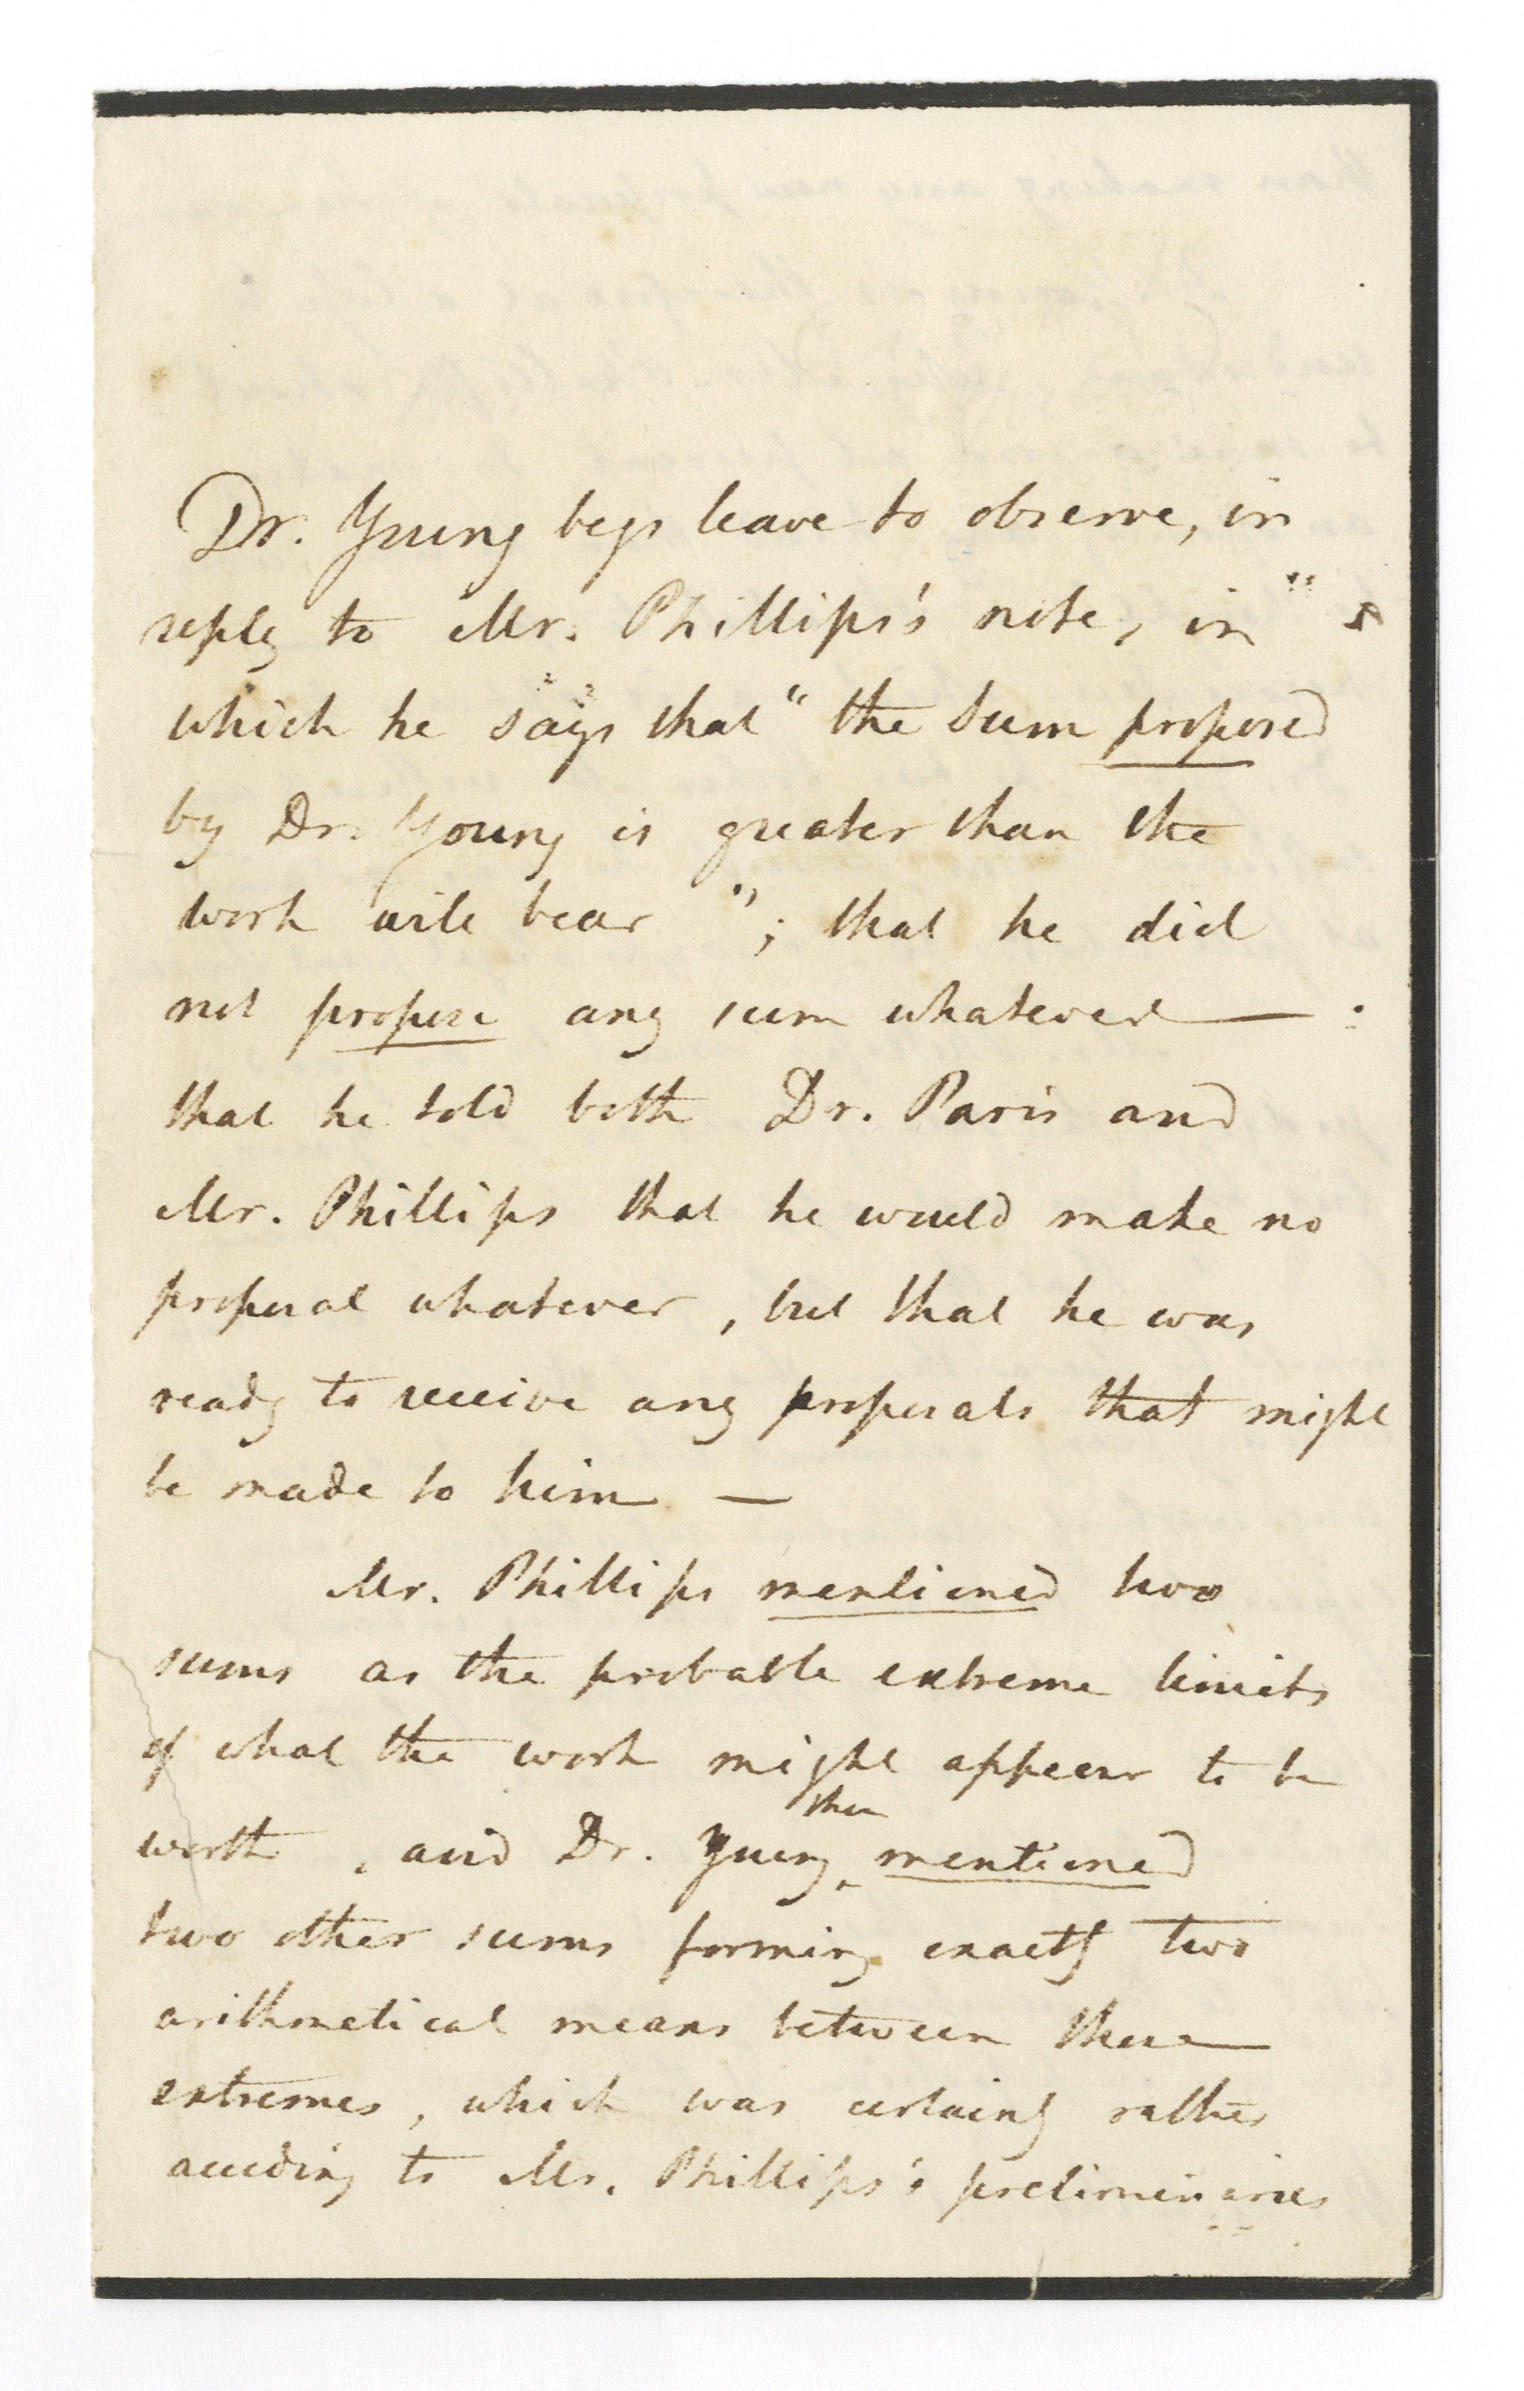 Dr. Young begs leave to observe, in
reply to Mr. Phillips's note, in
which he says that "the sum proposed
by Dr. Young is greater than the
work will bear"; that he did
not propose any sum whatever —
that he told both Dr. Paris and
Mr. Phillips that he would make no
proposal whatever, but that he was
ready to receive any proposals that might
be made to him —
Mr. Phillips mentioned two
sums as the probable extreme limits
of what the work might appear to be
worth, and Dr. Young then mentioned
two other sums forming exactly two
arithmetical means between these
extremes, which was certainly rather
acceding to Mr. Phillips's preliminaries